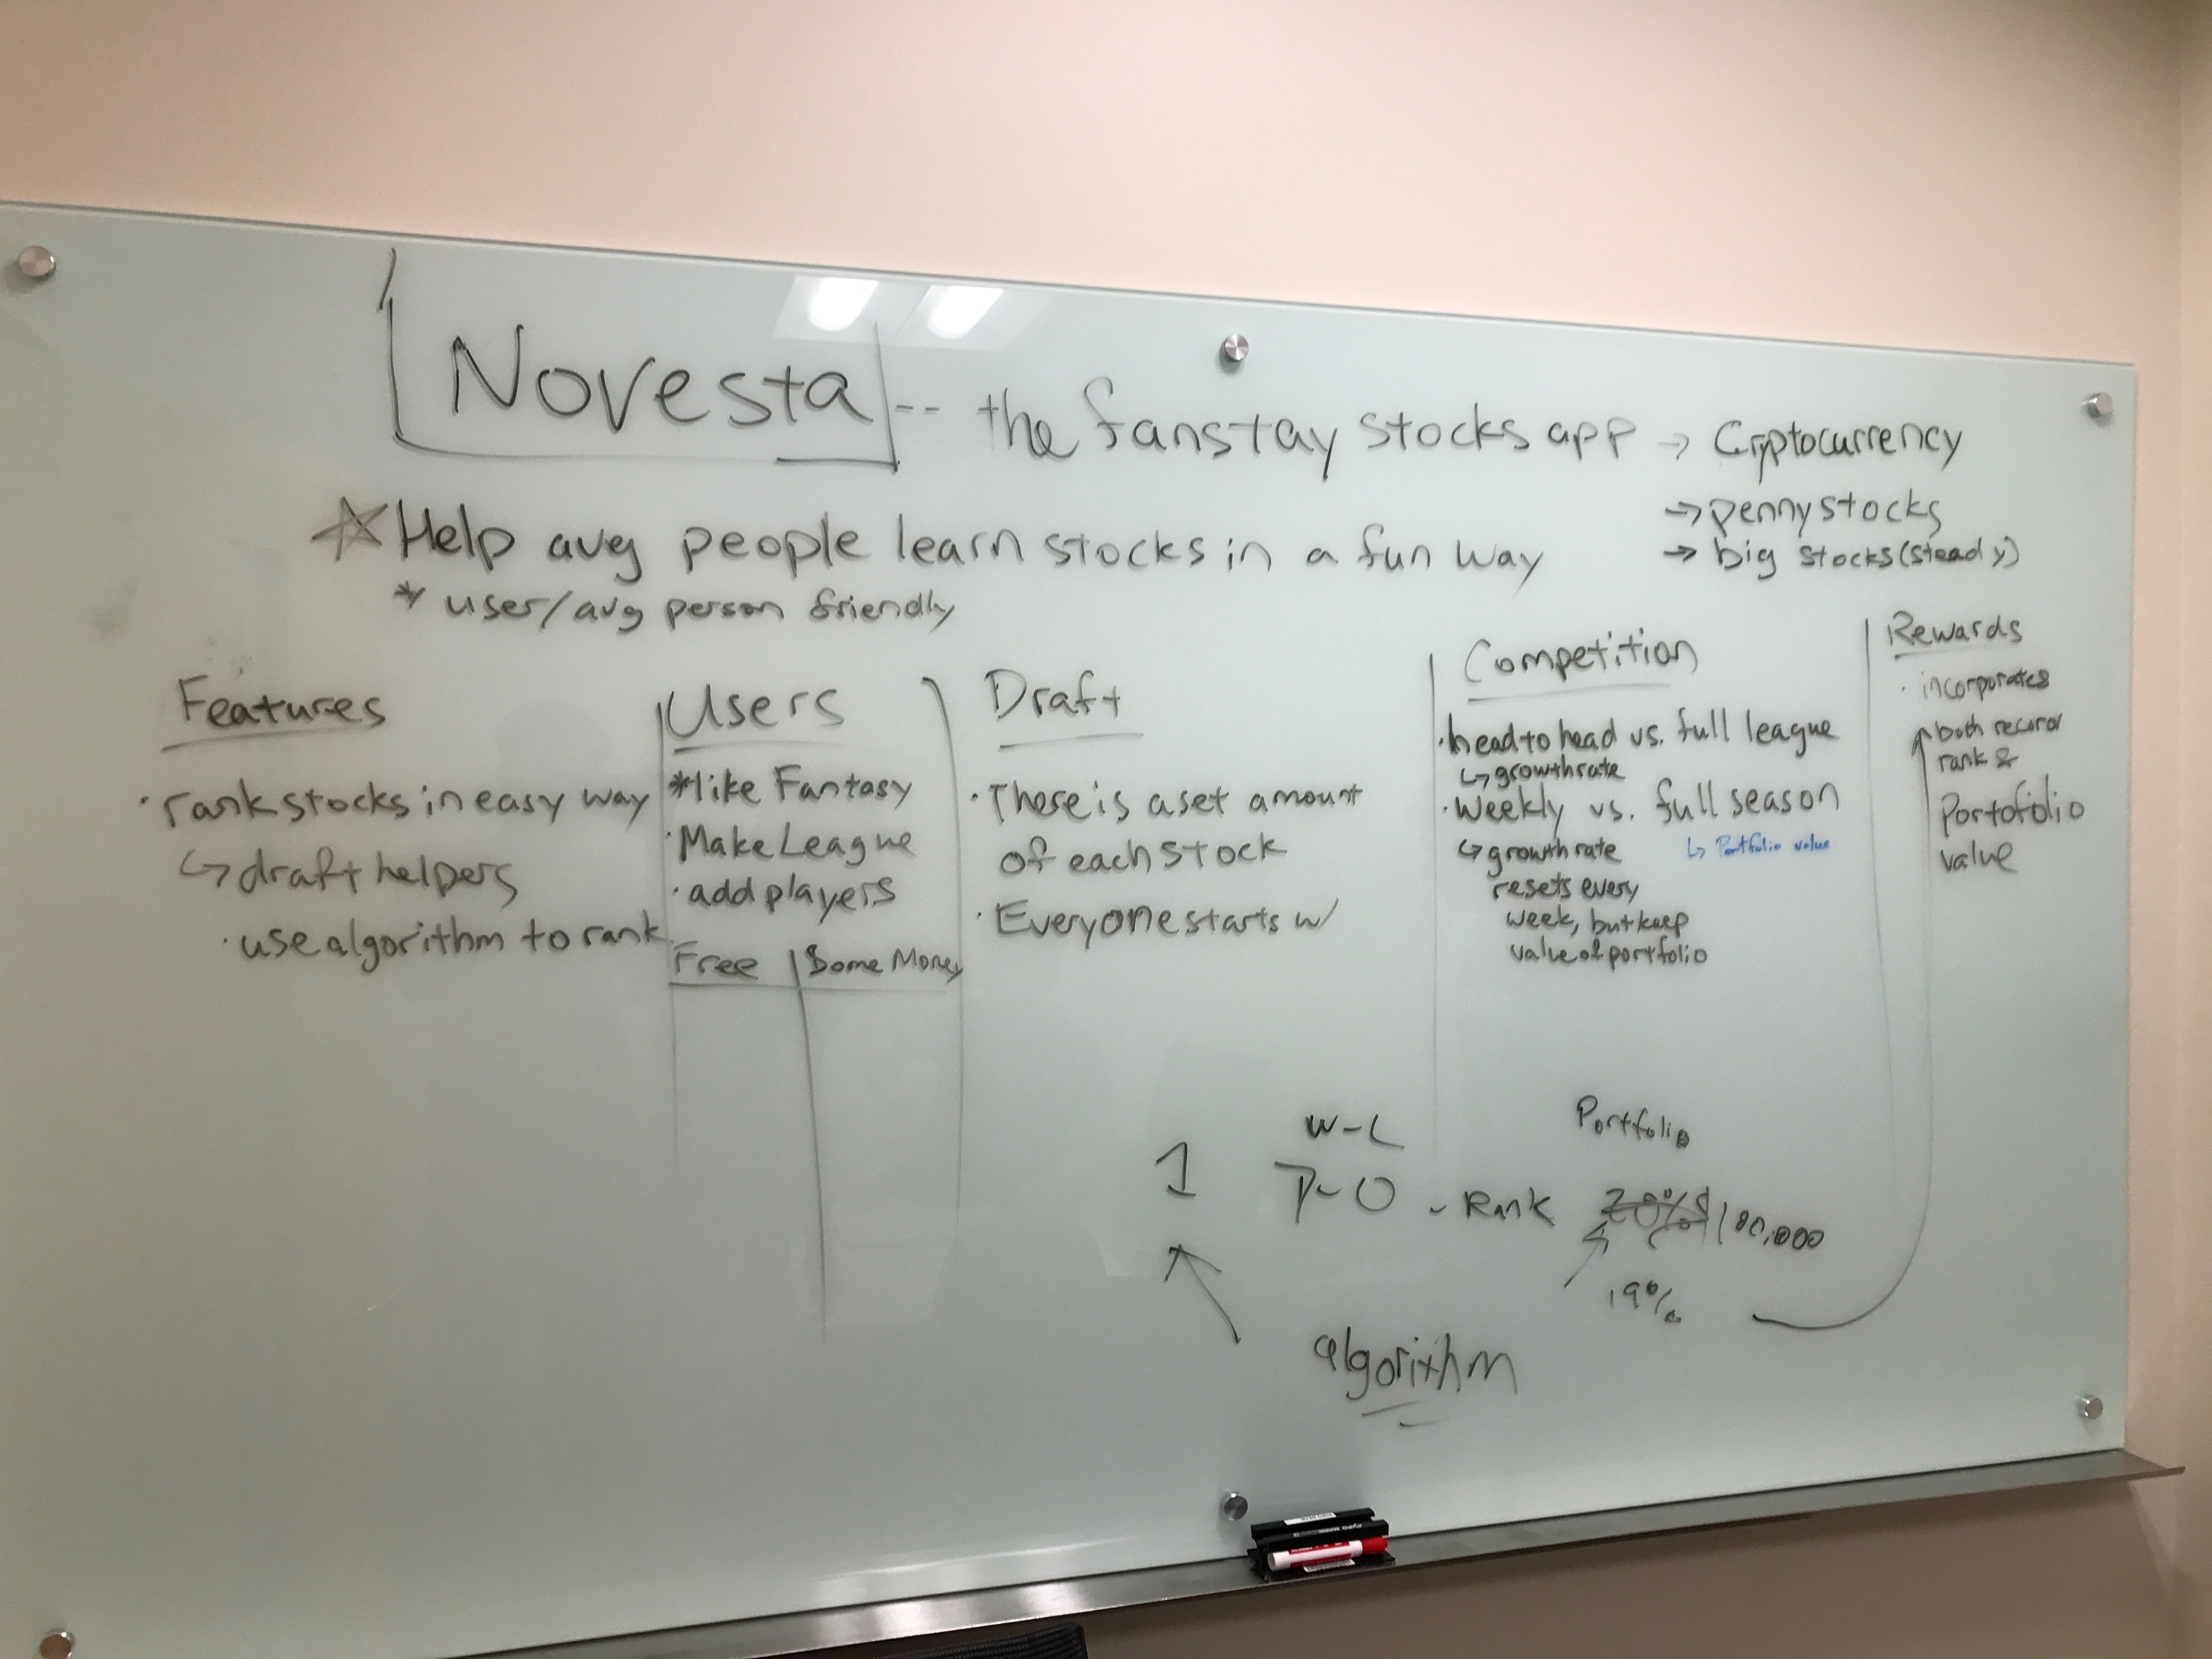 Novesta -- the fanstay stocks app → Cryptocurrency
→ penny stocks
→ big stocks (steady)
☆ Help avg people learn stocks in a fun way
* user/avg person friendly
Features
· rank stocks in easy way
↳ draft helpers
· use algorithm to rank
Users
*like Fantasy
· Make League
· add players
Free | Some Money
Draft
· There is a set amount
of each stock
· Everyone starts w/
Competition
· head to head vs. full league
↳ growth rate
· Weekly vs. full season
↳ growth rate
↳ Portfolio value
resets every
week, but keep
value of portfolio
Rewards
· incorporates
both record
rank &
Portofolio
value
W-L
Portfolio
1 7-0 - Rank 20% $100,000
19%
algorithm